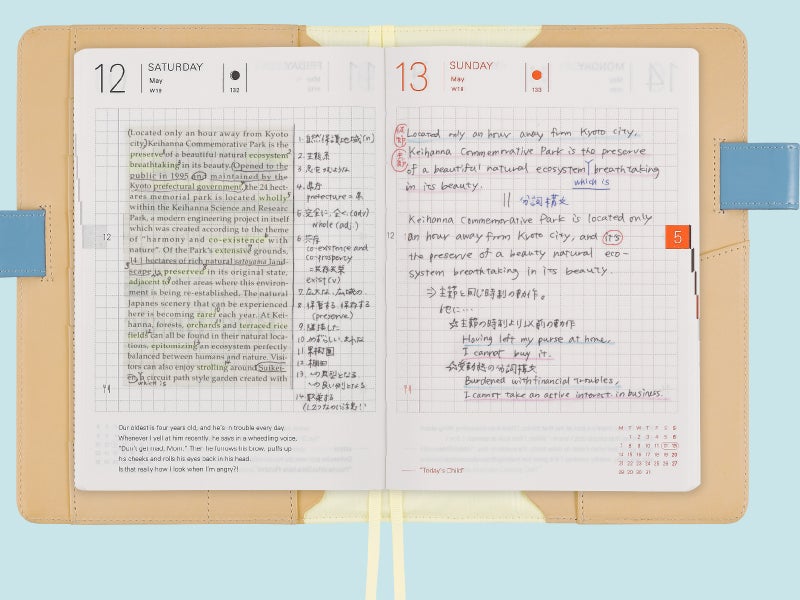 12
SATURDAY
May
W19
132
(Located only an hour away from Kyoto
city) Keihanna Commemorative Park is the
preserve¹ of a beautiful natural ecosystem²
breathtaking³ in its beauty. Opened to the
public in 1995 and maintained by the
Kyoto prefectural government,⁴ the 24 hect-
ares memorial park is located wholly⁵
within the Keihanna Science and Researc
Park, a modern engineering project in itself
which was created according to the theme
of "harmony and co-existence⁶ with
nature". Of the Park's extensive⁷ grounds,
14 hectares of rich natural satoyama land-
scape is preserved⁸ in its original state,
adjacent to⁹ other areas where this environ-
ment is being re-established. The natural
Japanes scenery that can be experienced
here is becoming rarer¹⁰ each year. At Kei-
hanna, forests, orchards¹¹ and terraced rice
fields¹² can all be found in their natural loca-
tions, epitomizing¹³ an ecosystem perfectly
balanced between humans and nature. Visi-
tors can also enjoy strolling¹⁴ around Suikei-
en, a circuit path style garden created with
which is
1. 自然保護地域(n)
2. 生態系
3. 息をのむような
4. 県庁
prefecture = 県
5. 完全に, 全く (adv)
whole (adj.)
6. 共存
co-existence and
co-prosperity
= 共存共栄
exist (v)
7. 広大な, 広域の
8. 保管する, 保存する
(preserve)
9. 隣接した
10. めずらしい, まれな
11. 果樹園
12. 棚田
13. ～の典型となる
～の良い例となる
14. 散策する
Our oldest is four years old, and he's in trouble every day.
Whenever I yell at him recently, he says in a wheedling voice,
"Don't get mad, Mom." Then he furrows his brow, puffs up
his cheeks and rolls his eyes back in his head.
Is that really how I look when I'm angry?!
13
SUNDAY
May
W19
133
Located only an hour away from Kyoto city,
主節 Keihanna Commemorative Park is the preserve
of a beautiful natural ecosystem breathtaking
which is
in its beauty.
分詞構文
Keihanna Commemorative Park is located only
12
an hour away from Kyoto City, and it's
the preserve of a beauty natural eco-
system breathtaking in its beauty.
⇒ 主節と同じ時制の動作。
他に…
☆主節の時制より以前の動作
Having left my purse at home,
I cannot buy it.
☆受動態の分詞構文
Burdened with financial troubles,
I cannot take an active interest in business.
5
"Today's Child"
M T W T F S S
1 2 3 4 5 6
7 8 9 10 11 12 13
14 15 16 17 18 19 20
21 22 23 24 25 26 27
28 29 30 31